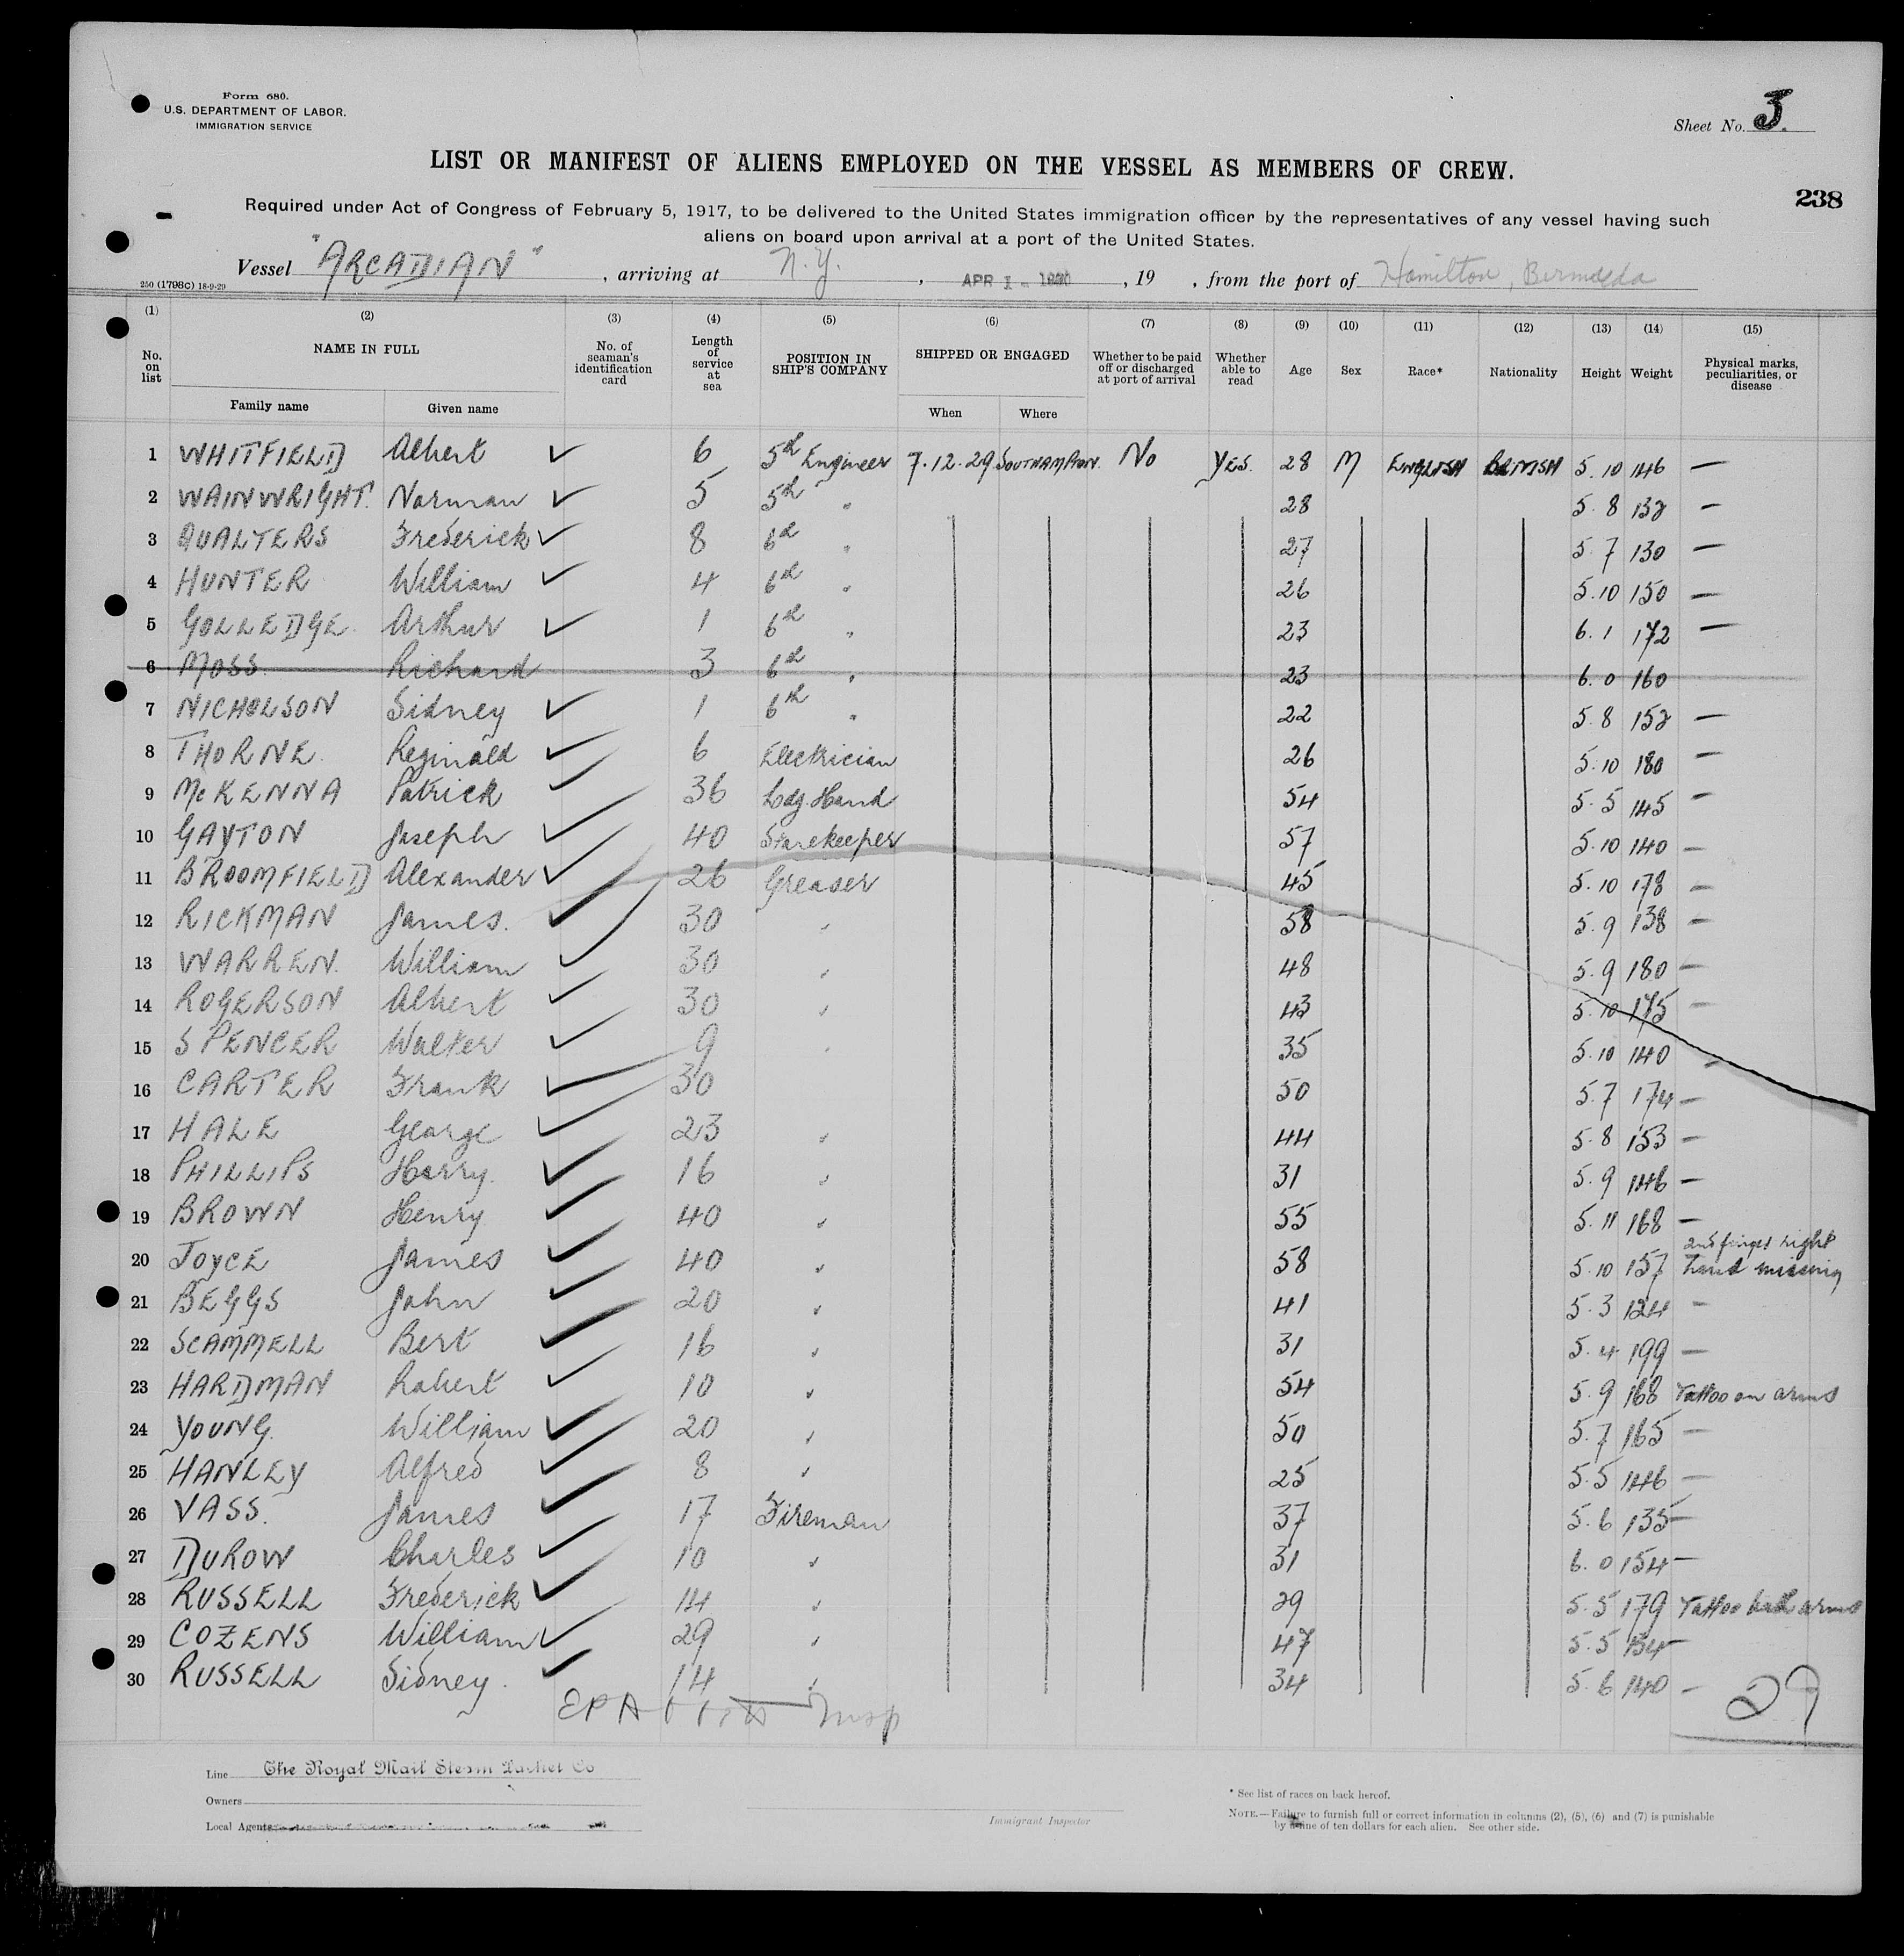 Form 680.
U.S. DEPARTMENT OF LABOR.
IMMIGRATION SERVICE
Sheet No. 3.
LIST OR MANIFEST OF ALIENS EMPLOYED ON THE VESSEL AS MEMBERS OF CREW.
238
Required under Act of Congress of February 5, 1917, to be delivered to the United States immigration officer by the representatives of any vessel having such
aliens on board upon arrival at a port of the United States.
Vessel "ARCADIAN", arriving at N.Y., APR 1 - 1930, 19 , from the port of Hamilton, Bermuda
250 (1798C) 18-9-29
(1) (2) (3) (4) (5) (6) (7) (8) (9) (10) (11) (12) (13) (14) (15)
No. on list NAME IN FULL No. of seaman's identification card Length of service at sea POSITION IN SHIP'S COMPANY SHIPPED OR ENGAGED Whether to be paid off or discharged at port of arrival Whether able to read Age Sex Race* Nationality Height Weight Physical marks, peculiarities, or disease
Family name Given name When Where
1 WHITFIELD Albert ✓ 6 5th Engineer 7.12.29 SOUTHAMPTON. No YES. 28 M ENGLISH BRITISH 5.10 146 —
2 WAINWRIGHT. Norman ✓ 5 5th " 28 5.8 132 —
3 QUALTERS Frederick ✓ 8 6th " 27 5.7 130 —
4 HUNTER William ✓ 4 6th " 26 5.10 150 —
5 GOLLEDGE. Arthur ✓ 1 6th " 23 6.1 172 —
6 MOSS. Richard 3 6th " 23 6.0 160
7 NICHOLSON Sidney ✓ 1 6th " 22 5.8 152 —
8 THORNE. Reginald ✓ 6 Electrician 26 5.10 180 —
9 McKENNA Patrick ✓ 36 Ldg. Hand 54 5.5 145 —
10 GAYTON Joseph ✓ 40 Storekeeper 57 5.10 140 —
11 BROOMFIELD Alexander ✓ 26 Greaser 45 5.10 178 —
12 RICKMAN James. ✓ 30 " 58 5.9 138 —
13 WARREN. William ✓ 30 " 48 5.9 180 —
14 ROGERSON Albert ✓ 30 " 43 5.10 175 —
15 SPENCER Walter ✓ 9 " 35 5.10 140 —
16 CARTER Frank ✓ 30 50 5.7 174 —
17 HALE George ✓ 23 " 44 5.8 153 —
18 PHILLIPS Harry. ✓ 16 " 31 5.9 146 —
19 BROWN Henry ✓ 40 " 55 5.11 168 —
20 JOYCE James ✓ 40 " 58 5.10 157 2nd finger right hand missing
21 BEGGS John ✓ 20 " 41 5.3 124 —
22 SCAMMELL Bert ✓ 16 " 31 5.4 199 —
23 HARDMAN Robert ✓ 10 " 54 5.9 168 Tattoo on arms
24 YOUNG. William ✓ 20 " 50 5.7 165 —
25 HANLEY Alfred ✓ 8 " 25 5.5 146 —
26 VASS. James ✓ 17 Fireman 37 5.6 135 —
27 DUROW Charles ✓ 10 " 31 6.0 154 —
28 RUSSELL Frederick ✓ 14 " 29 5.5 179 Tattoo both arms
29 COZENS William ✓ 29 " 47 5.5 154 —
30 RUSSELL Sidney. ✓ 14 " 34 5.6 140 —
29
Insp
Line The Royal Mail Steam Packet Co
Owners
Local Agents
Immigrant Inspector
* See list of races on back hereof.
NOTE.—Failure to furnish full or correct information in columns (2), (5), (6) and (7) is punishable
by a fine of ten dollars for each alien. See other side.